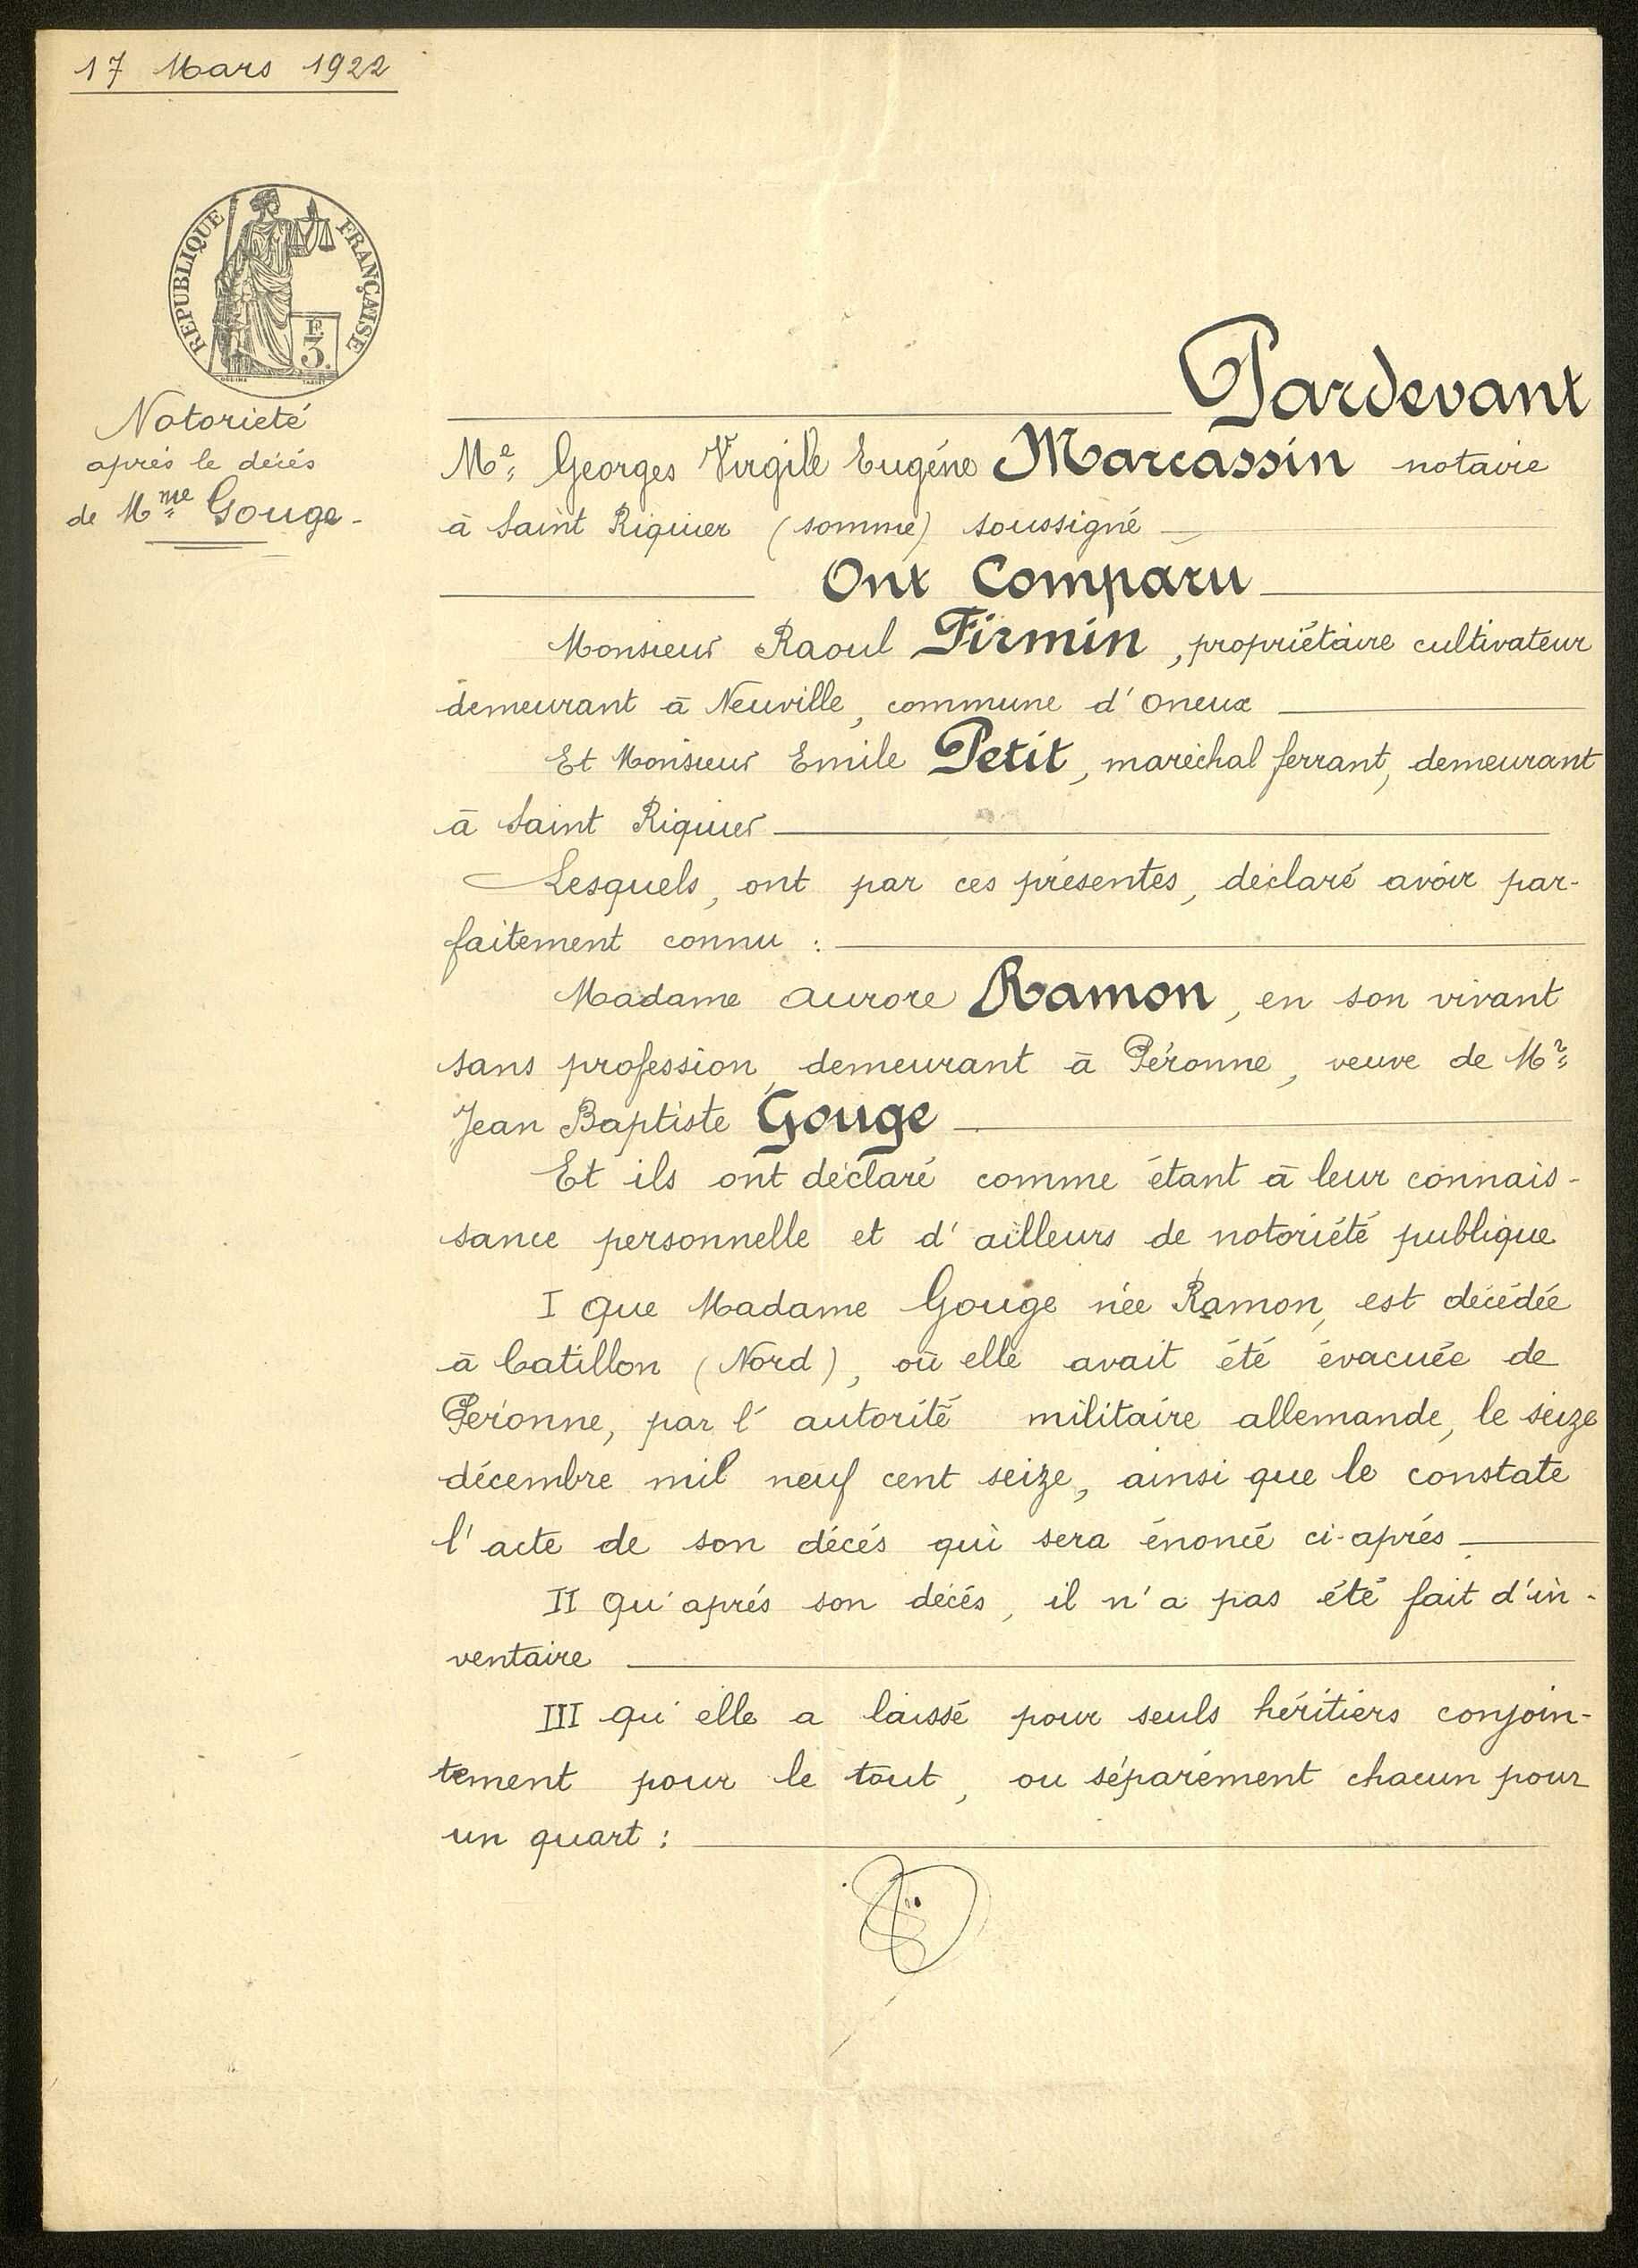 17 Mars 1922
REPUBLIQUE FRANÇAISE
F.
3.
Notorieté
après le décés
de Mme Gouge-
Pardevant
Me Georges Virgile Eugéne Marcassin notaire
à Saint Riquier (somme) soussigné
Ont Comparu
Monsieur Raoul Firmin, propriétaire cultivateur
demeurant à Neuville, commune d'Oneux
Et Monsieur Emile Petit, maréchal ferrant, demeurant
à Saint Riquier
Lesquels, ont par ces présentes, déclaré avoir par-
faitement connu :
Madame Aurore Ramon, en son vivant
sans profession, demeurant à Péronne, veuve de Mr
Jean Baptiste Gouge
Et ils ont déclaré comme étant à leur connais-
sance personnelle et d'ailleurs de notoriété publique
I Que Madame Gouge née Ramon, est décédée
à Catillon (Nord), où elle avait été évacuée de
Péronne, par l'autorité militaire allemande, le seize
décembre mil neuf cent seize, ainsi que le constate
l'acte de son décés qui sera énoncé ci-aprés
II Qu'aprés son décés, il n'a pas été fait d'in-
ventaire
III qu'elle a laissé pour seuls héritiers conjoin-
tement pour le tout, ou séparément chacun pour
un quart :